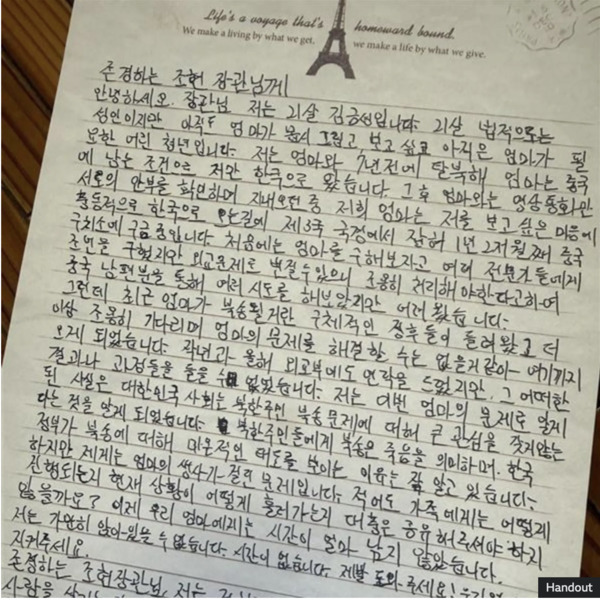 Life's a voyage that's homeward bound.
We make a living by what we get, we make a life by what we give.
존경하는 조현 장관님께
안녕하세요. 장관님 저는 21살 김금성입니다. 21살 법적으로는
성인이지만 아직도 엄마가 몹시 그립고, 보고 싶고 아직은 엄마가 필
요한 어린 청년입니다. 저는 엄마와 7년전에 탈북해 엄마는 중국
에 남는 조건으로 저만 한국으로 왔습니다. 그 후 엄마와는 영상통화만
서로의 안부를 확인하며 지내오던 중 저희 엄마는 저를 보고 싶은 마음에
충동적으로 한국으로 오는길에 제3국 국경에서 잡혀 1년 2개월째 중국
구치소에 구금중입니다. 처음에는 엄마를 구해보자고 여러 전문가들에게
조언을 구했지만 외교문제로 번질수있으니 조용히 처리해야한다고하여
중국 남편분을 통해 여러 시도를 해보았지만 어려웠습니다.
그런데 최근 엄마가 북송될거란 구체적인 징후들이 들려왔고 더
이상 조용히 기다리며 엄마의 문제를 해결할 수는 없을거같아 여기까지
오게 되었습니다. 작년과 올해 외교부에도 연락을 드렸지만, 그 어떠한
결과나 과정들을 들을 수 없었습니다. 저는 이번 엄마의 문제로 알게
된 사실은 대한민국 사회는 북한주민 북송문제에 대해 큰 관심을 갖지않는
다는 것을 알게 되었습니다. 북한주민들에게 북송은 죽음을 의미하며, 한국
정부가 북송에 대해 미온적인 태도를 보이는 이유는 잘 알고 있습니다.
하지만 제게는 엄마의 생사가 걸린 문제입니다. 적어도 가족에게는 어떻게
진행되는지 현재 상황이 어떻게 흘러가는지 대충은 공유해주셔야 하지
않을까요? 이제 우리 엄마에게는 시간이 얼마 남지 않았습니다.
저는 가만히 앉아있을 수 없습니다. 시간이 없습니다. 제발 도와주세요!
지켜주세요.
존경하는 조현장관님, 저는
Handout